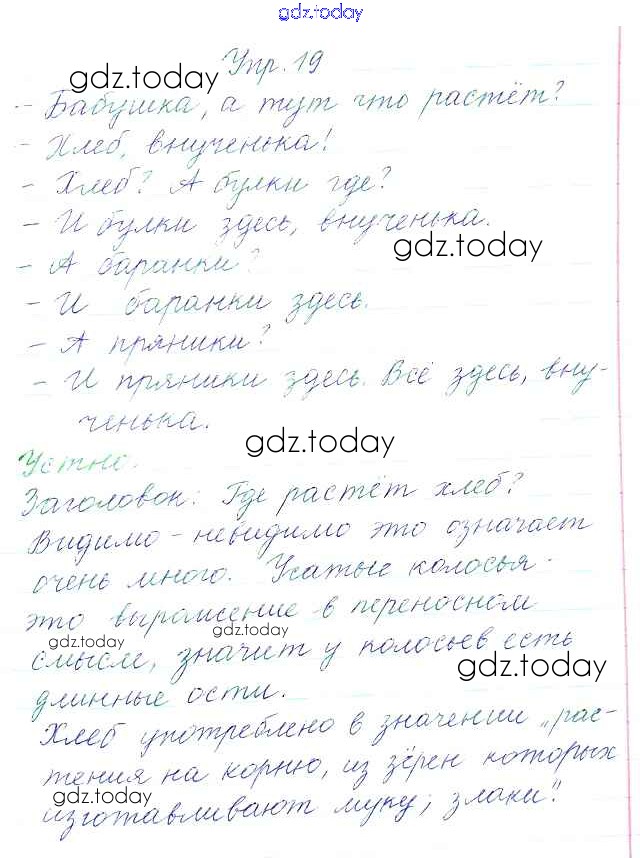 gdz.today
gdz.today
Упр. 19
- Бабушка, а тут что растёт?
- Хлеб, внученька!
- Хлеб? А булки где?
- И булки здесь, внученька.
gdz.today
- А баранки?
- И баранки здесь.
- А пряники?
- И пряники здесь. Всё здесь, вну-
ченька.
gdz.today
Устно.
Заголовок: Где растёт хлеб?
Видимо - невидимо это означает
очень много. Усатые колосья -
это выражение в переносном
gdz.today
gdz.today
смысле, значит у колосьев есть
gdz.today
длинные ости.
Хлеб употреблено в значении „рас-
тения на корню, из зёрен которых
gdz.today
изготавливают муку; злаки".